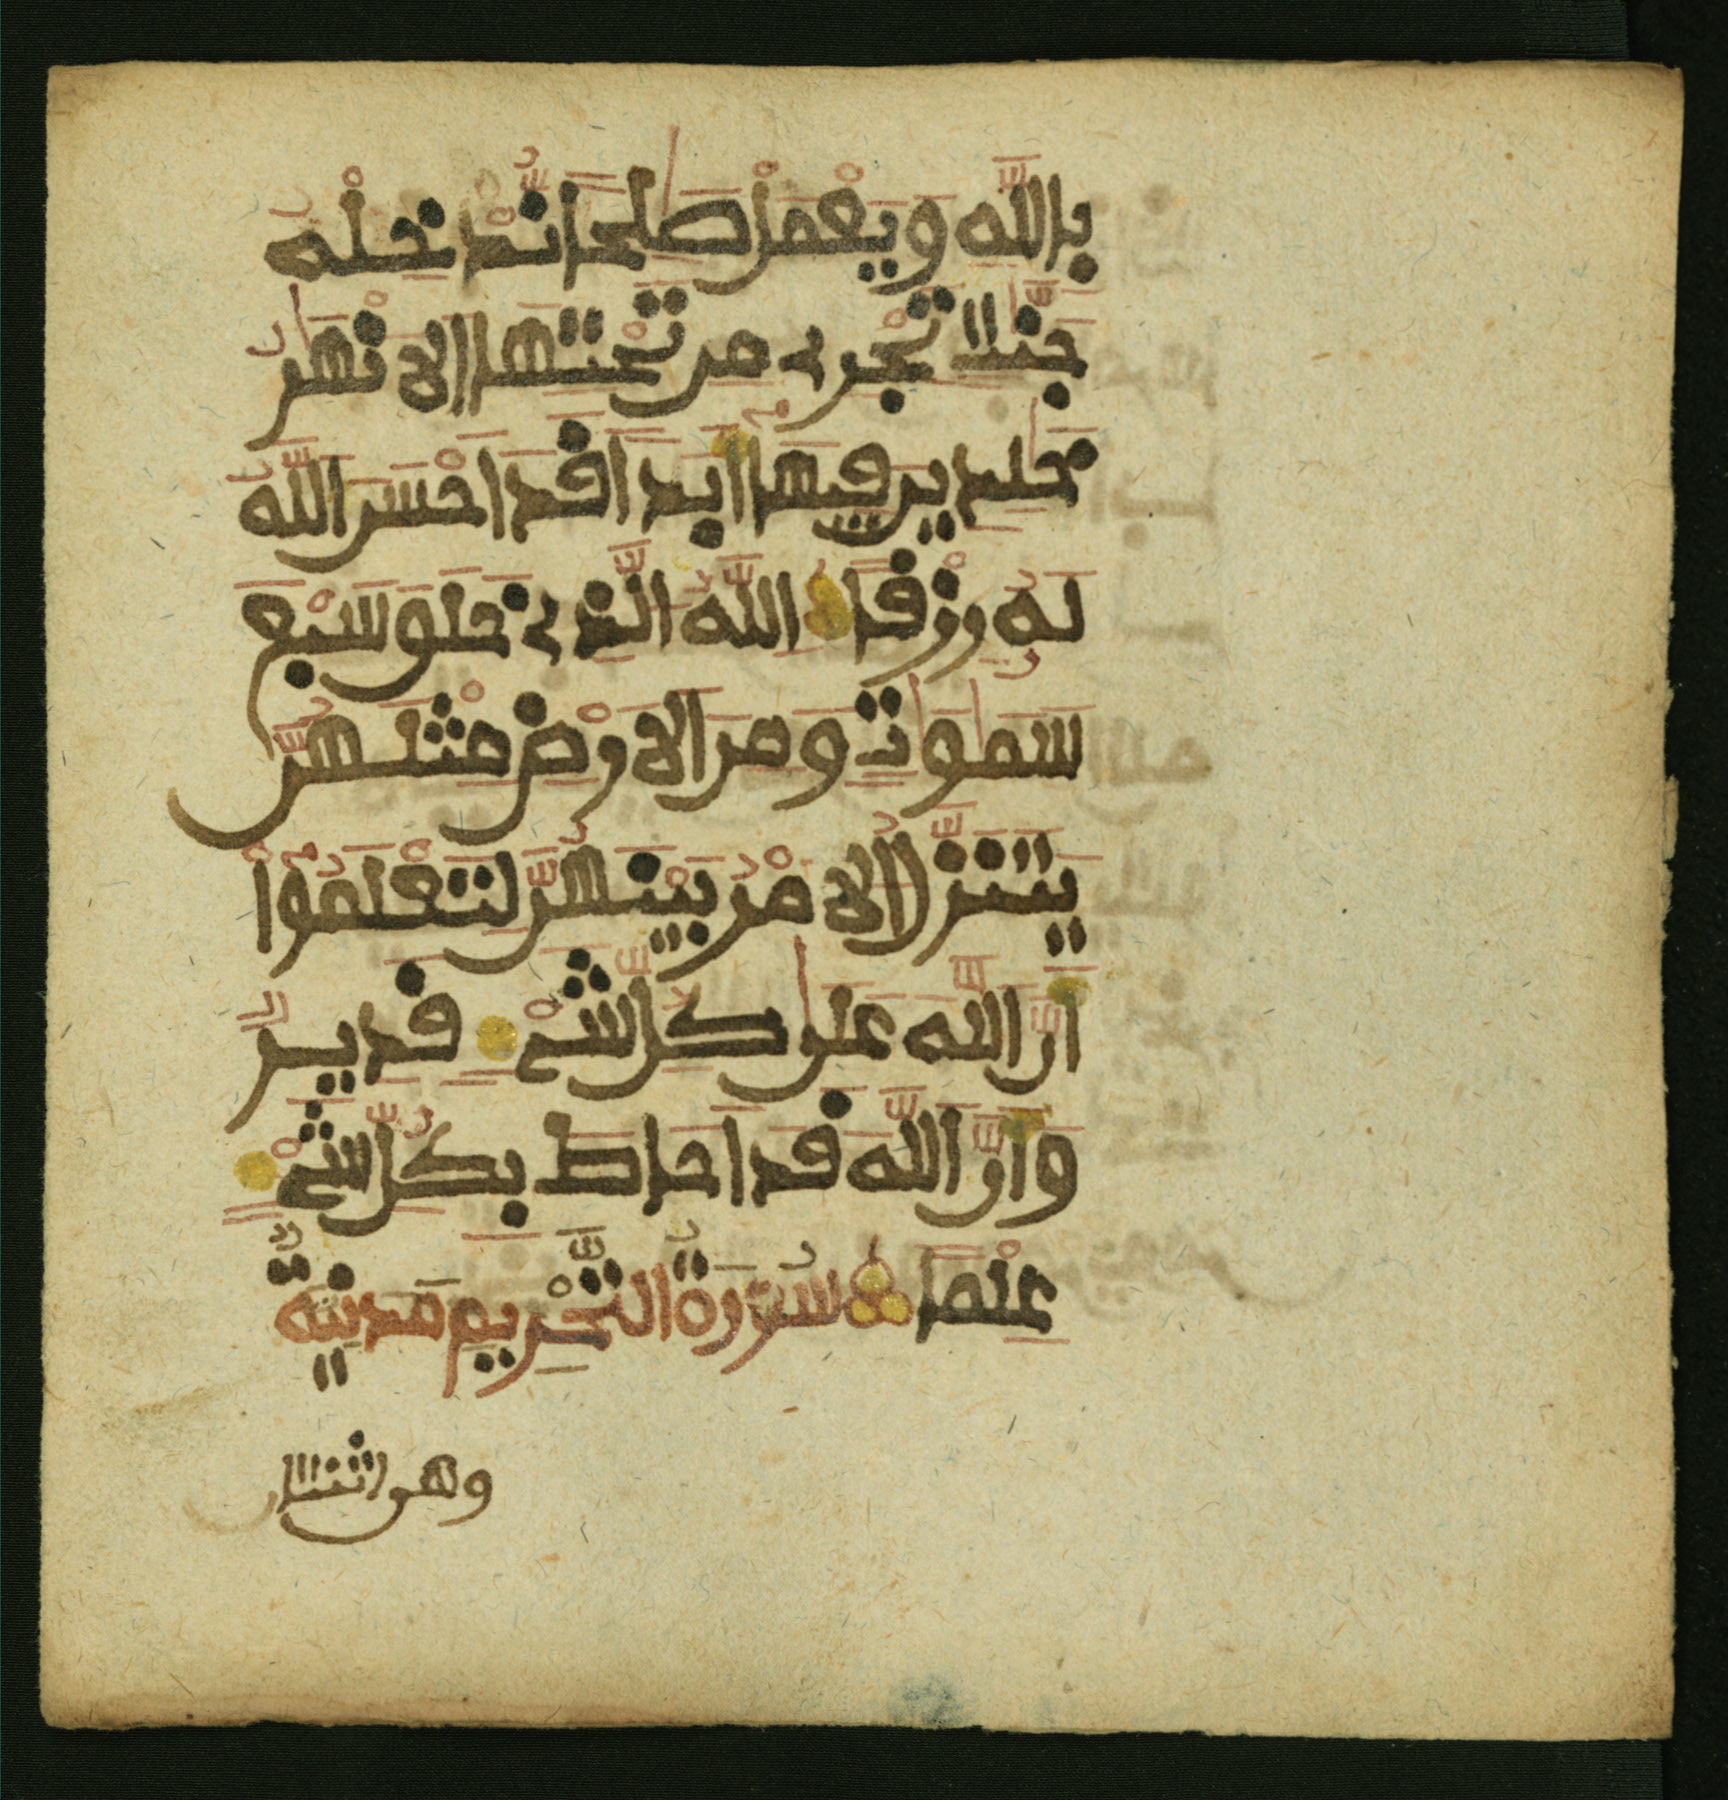 بِاللَّهِ وَيَعْمَلْ صَٰلِحاً نُّدْخِلْهُ
جَنَّٰتٍ تَجْرِے مِن تَحْتِهَا اَلَانْهَٰرُ
خَٰلِدِينَ فِيهَا أَبَداً قَدَ اَحْسَنَ اَللَّهُ
لَهُۥ رِزْقاً اَللَّهُ اَلَّذِے خَلَقَ سَبْعَ
سَمَٰوَٰتٍ وَمِنَ اَلَارْضِ مِثْلَهُنَّ
يَتَنَزَّلُ اَلَامْرُ بَيْنَهُنَّ لِتَعْلَمُواْ
أَنَّ اَللَّهَ عَلَىٰ كُلِّ شَےْءٍ قَدِيرٌ
وَأَنَّ اَللَّهَ قَدَ اَحَاطَ بِكُلِّ شَےْءٍ
عِلْماً سُورَةُ التَّحْرِيمِ مَدَنِيَّةٌ
وهى اثنتان